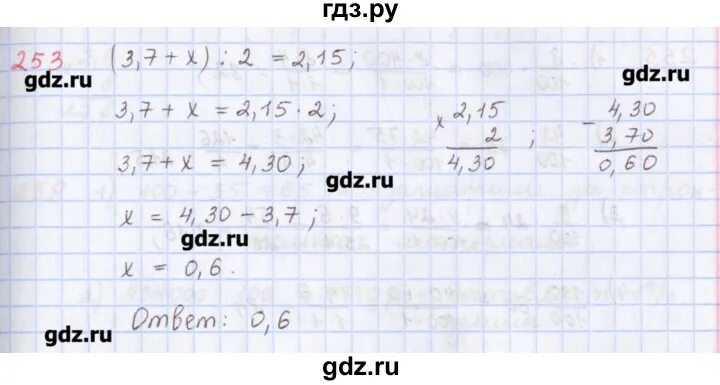 гдз.ру
253. (3,7 + x) : 2 = 2,15;
gdz.ru gdz.ru
3,7 + x = 2,15 · 2; × 2,15 − 4,30
2 ; 3,70
3,7 + x = 4,30; 4,30 0,60
gdz.ru
x = 4,30 − 3,7;
gdz.ru
x = 0,6.
gdz.ru gdz.ru
Ответ: 0,6
gdz.ru